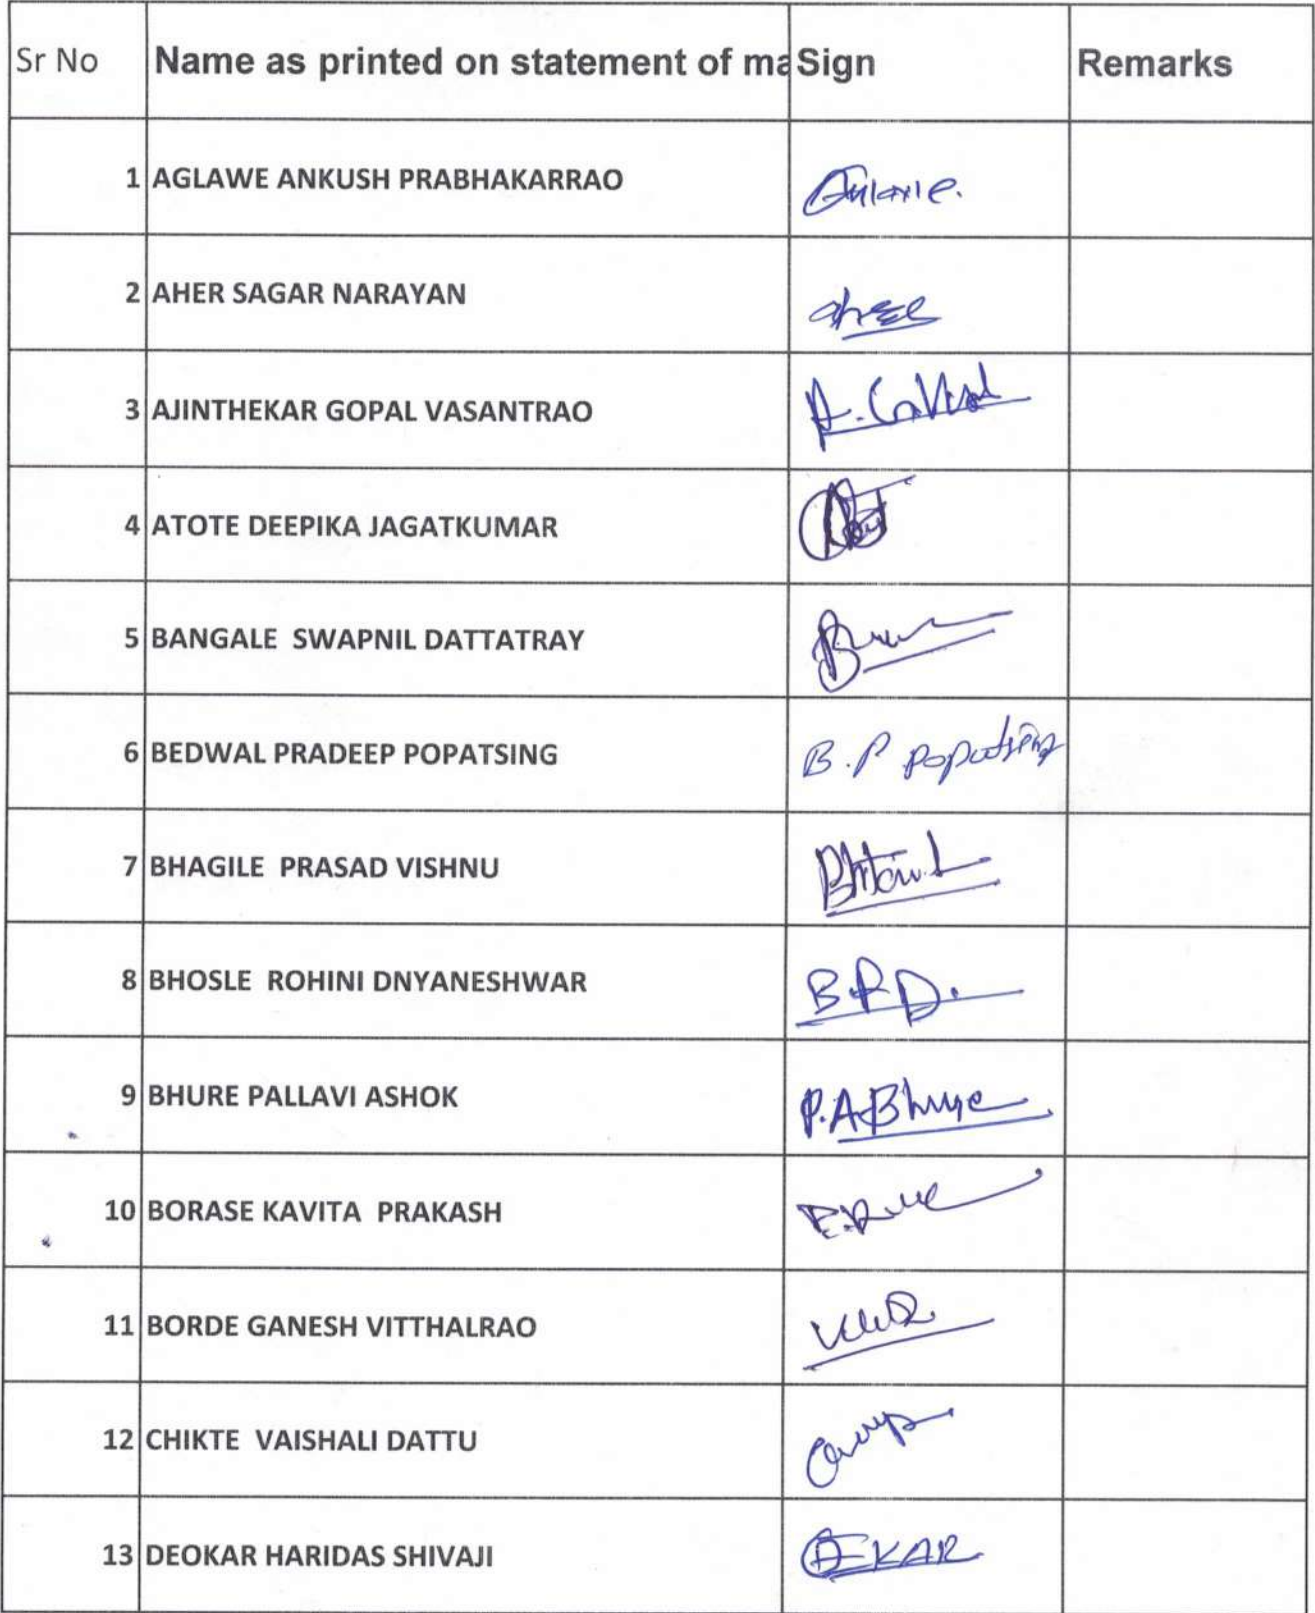 Sr No Name as printed on statement of ma Sign Remarks
1 AGLAWE ANKUSH PRABHAKARRAO
2 AHER SAGAR NARAYAN
3 AJINTHEKAR GOPAL VASANTRAO
4 ATOTE DEEPIKA JAGATKUMAR
5 BANGALE SWAPNIL DATTATRAY
6 BEDWAL PRADEEP POPATSING B.P popatsing
7 BHAGILE PRASAD VISHNU
8 BHOSLE ROHINI DNYANESHWAR B.R.D.
9 BHURE PALLAVI ASHOK P.A Bhure
10 BORASE KAVITA PRAKASH
11 BORDE GANESH VITTHALRAO
12 CHIKTE VAISHALI DATTU
13 DEOKAR HARIDAS SHIVAJI